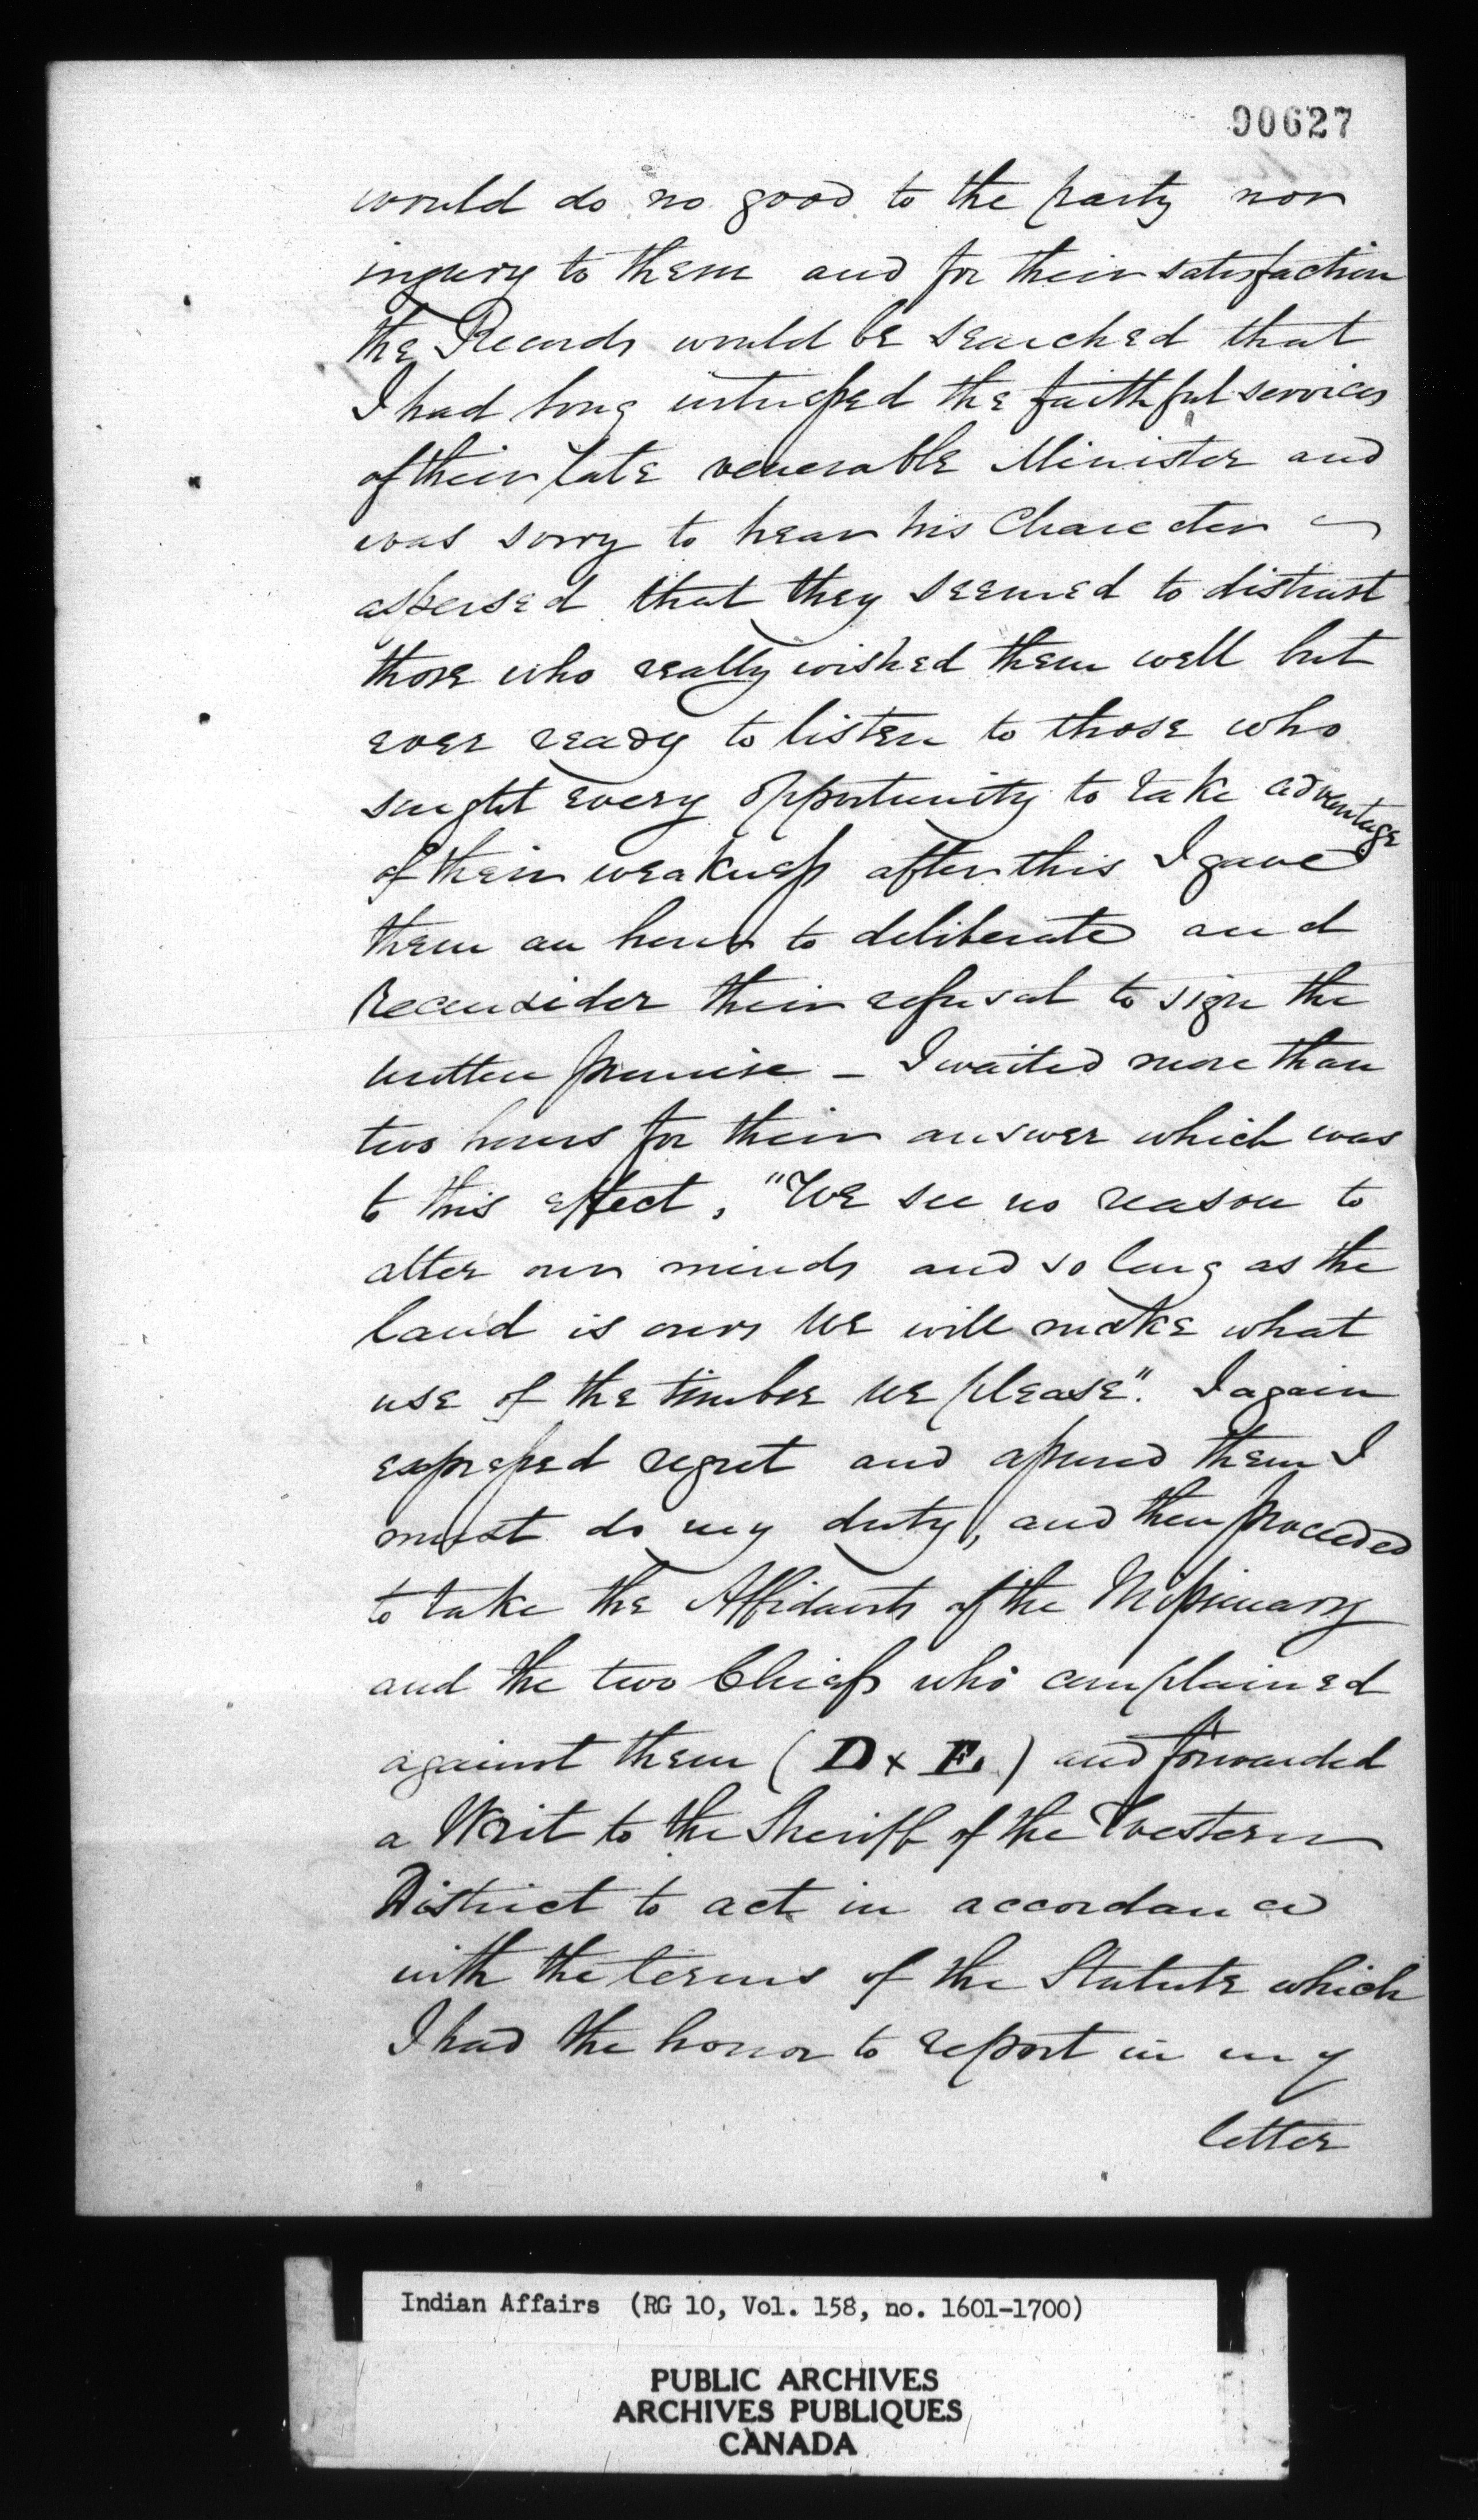 90627
would do no good to the party nor
injury to them and for their satisfaction
the Records would be searched that
I had long witnessed the faithful services
of their late venerable Minister and
was sorry to hear his Character
aspersed that they seemed to distrust
those who really wished them well but
ever ready to listen to those who
sought every opportunity to take advantage
of their weakness after this I gave
them an hour to deliberate and
reconsider their refusal to sign the
written promise – I waited more than
two hours for their answer which was
to this effect, "We see no reason to
alter our minds and so long as the
land is ours we will make what
use of the timber we please". I again
expressed regret and assured them I
must do my duty, and then proceeded
to take the Affidavits of the Missionary
and the two Chiefs who complained
against them (D & E.) and forwarded
a Writ to the Sheriff of the Western
District to act in accordance
with the terms of the Statute which
I had the honor to report in my
letter
Indian Affairs (RG 10, Vol. 158, no. 1601-1700)
PUBLIC ARCHIVES
ARCHIVES PUBLIQUES
CANADA